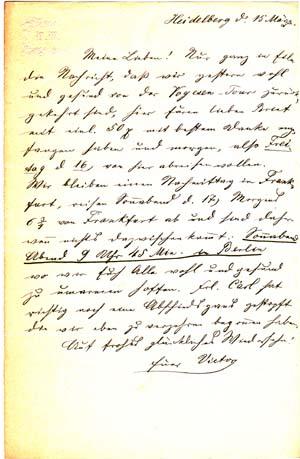 Heidelberg d. 15 März
Meine Lieben! Nur ganz in Eile
die Nachricht, daß wir gestern wohl
und gesund von der Vogesen-Tour zurück
gekehrt sind, hier Euren lieben Brief
mit einl. 50 M mit bestem Danke emp
fangen haben und morgen, also Frei
tag d 16, von hier abreisen wollen.
Wir bleiben einen Nachmittag in Frank
furt, reisen Sonnabend d. 17, Morgens
von Frankfurt ab und sind daher
wenn nichts dazwischen kommt: Sonnabend
Abend 9 Uhr 45 Min. in Berlin
wo wir Euch Alle wohl und gesund
zu hoffen. Frl. Carl hat
richtig noch eine Abschiedsgans gestopft
die wir eben zu verzehren begonnen haben.
Auf frohes glückliches Wiedersehn!
Euer Victor